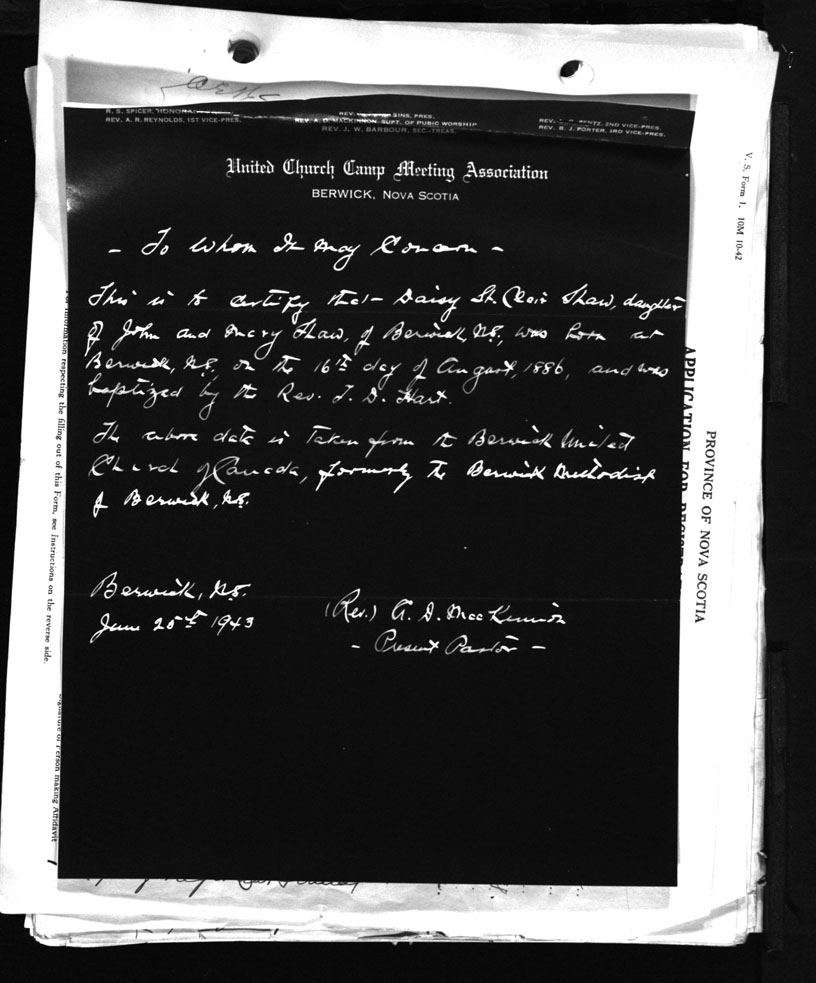 R. S. SPICER, HONORA
REV. A. R. REYNOLDS, 1ST VICE-PRES.
PRES.
REV. A. D. MACKINNON, SUPT. OF PUBIC WORSHIP
REV. J. W. BARBOUR, SEC.-TREAS.
2ND VICE-PRES.
REV. B. J. PORTER, 3RD VICE-PRES.
United Church Camp Meeting Association
BERWICK, NOVA SCOTIA
- To Whom It May Concern -
This is to certify that - Daisy St. Clair Shaw, daughter
of John and Mary Shaw, of Berwick, N.S., was born at
Berwick, N.S., on the 16th day of August, 1886, and was
baptized by the Rev. T. D. Hart.
The above data is taken from the Berwick United
Church of Canada, formerly the Berwick Methodist
of Berwick, N.S.
Berwick, N.S.
June 25th 1943
(Rev.) A. D. MacKinnon
- Present Pastor -
V. S. Form 1. 10M 10-42
PROVINCE OF NOVA SCOTIA
APPLICATION FOR
information respecting the filling out of this Form, see Instructions on the reverse side.
Signature of Person making Affidavit